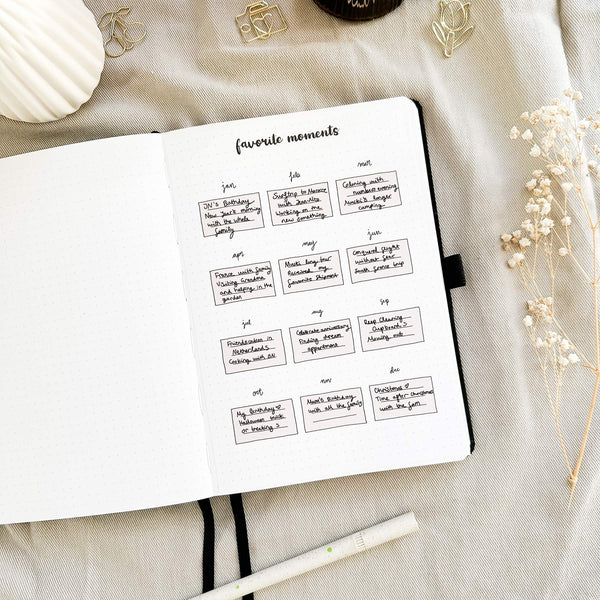 favorite moments
jan
feb
mar
JN's Birthday
New Year's morning
with the whole
family
Surftrip to
with
Working on me
new something
Coloring with
numbers evening
longer
camping
apr
may
jun
France with family
Visiting Grandma
and helping in the
garden
long tour
Received my
favourite shipment
Conquered flight
without fear
South France trip
jul
aug
sep
Friendscation in
Netherlands
Cooking with
Celebrate anniversary
Finding dream
appointment
Deep Cleaning
Cupboard :)
Moving out
oct
nov
dec
My Birthday ♡
Halloween trick
or treating :)
Mom's Birthday
with all the family
Christmas ♡
Time after Christmas
with the fam